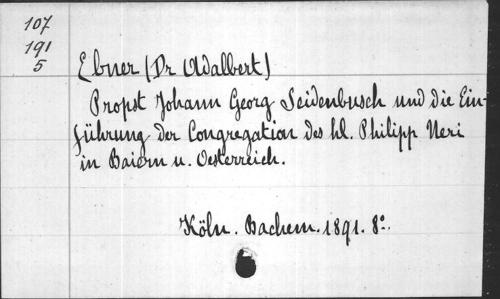 107
191
5
Ebner (Dr Adalbert)
Propst Johann Georg Seidenbusch und die Ein-
führung der Congregation des hl. Philipp Neri
in Baiern u. Oesterreich.
Köln. Bachem. 1891. 8°.